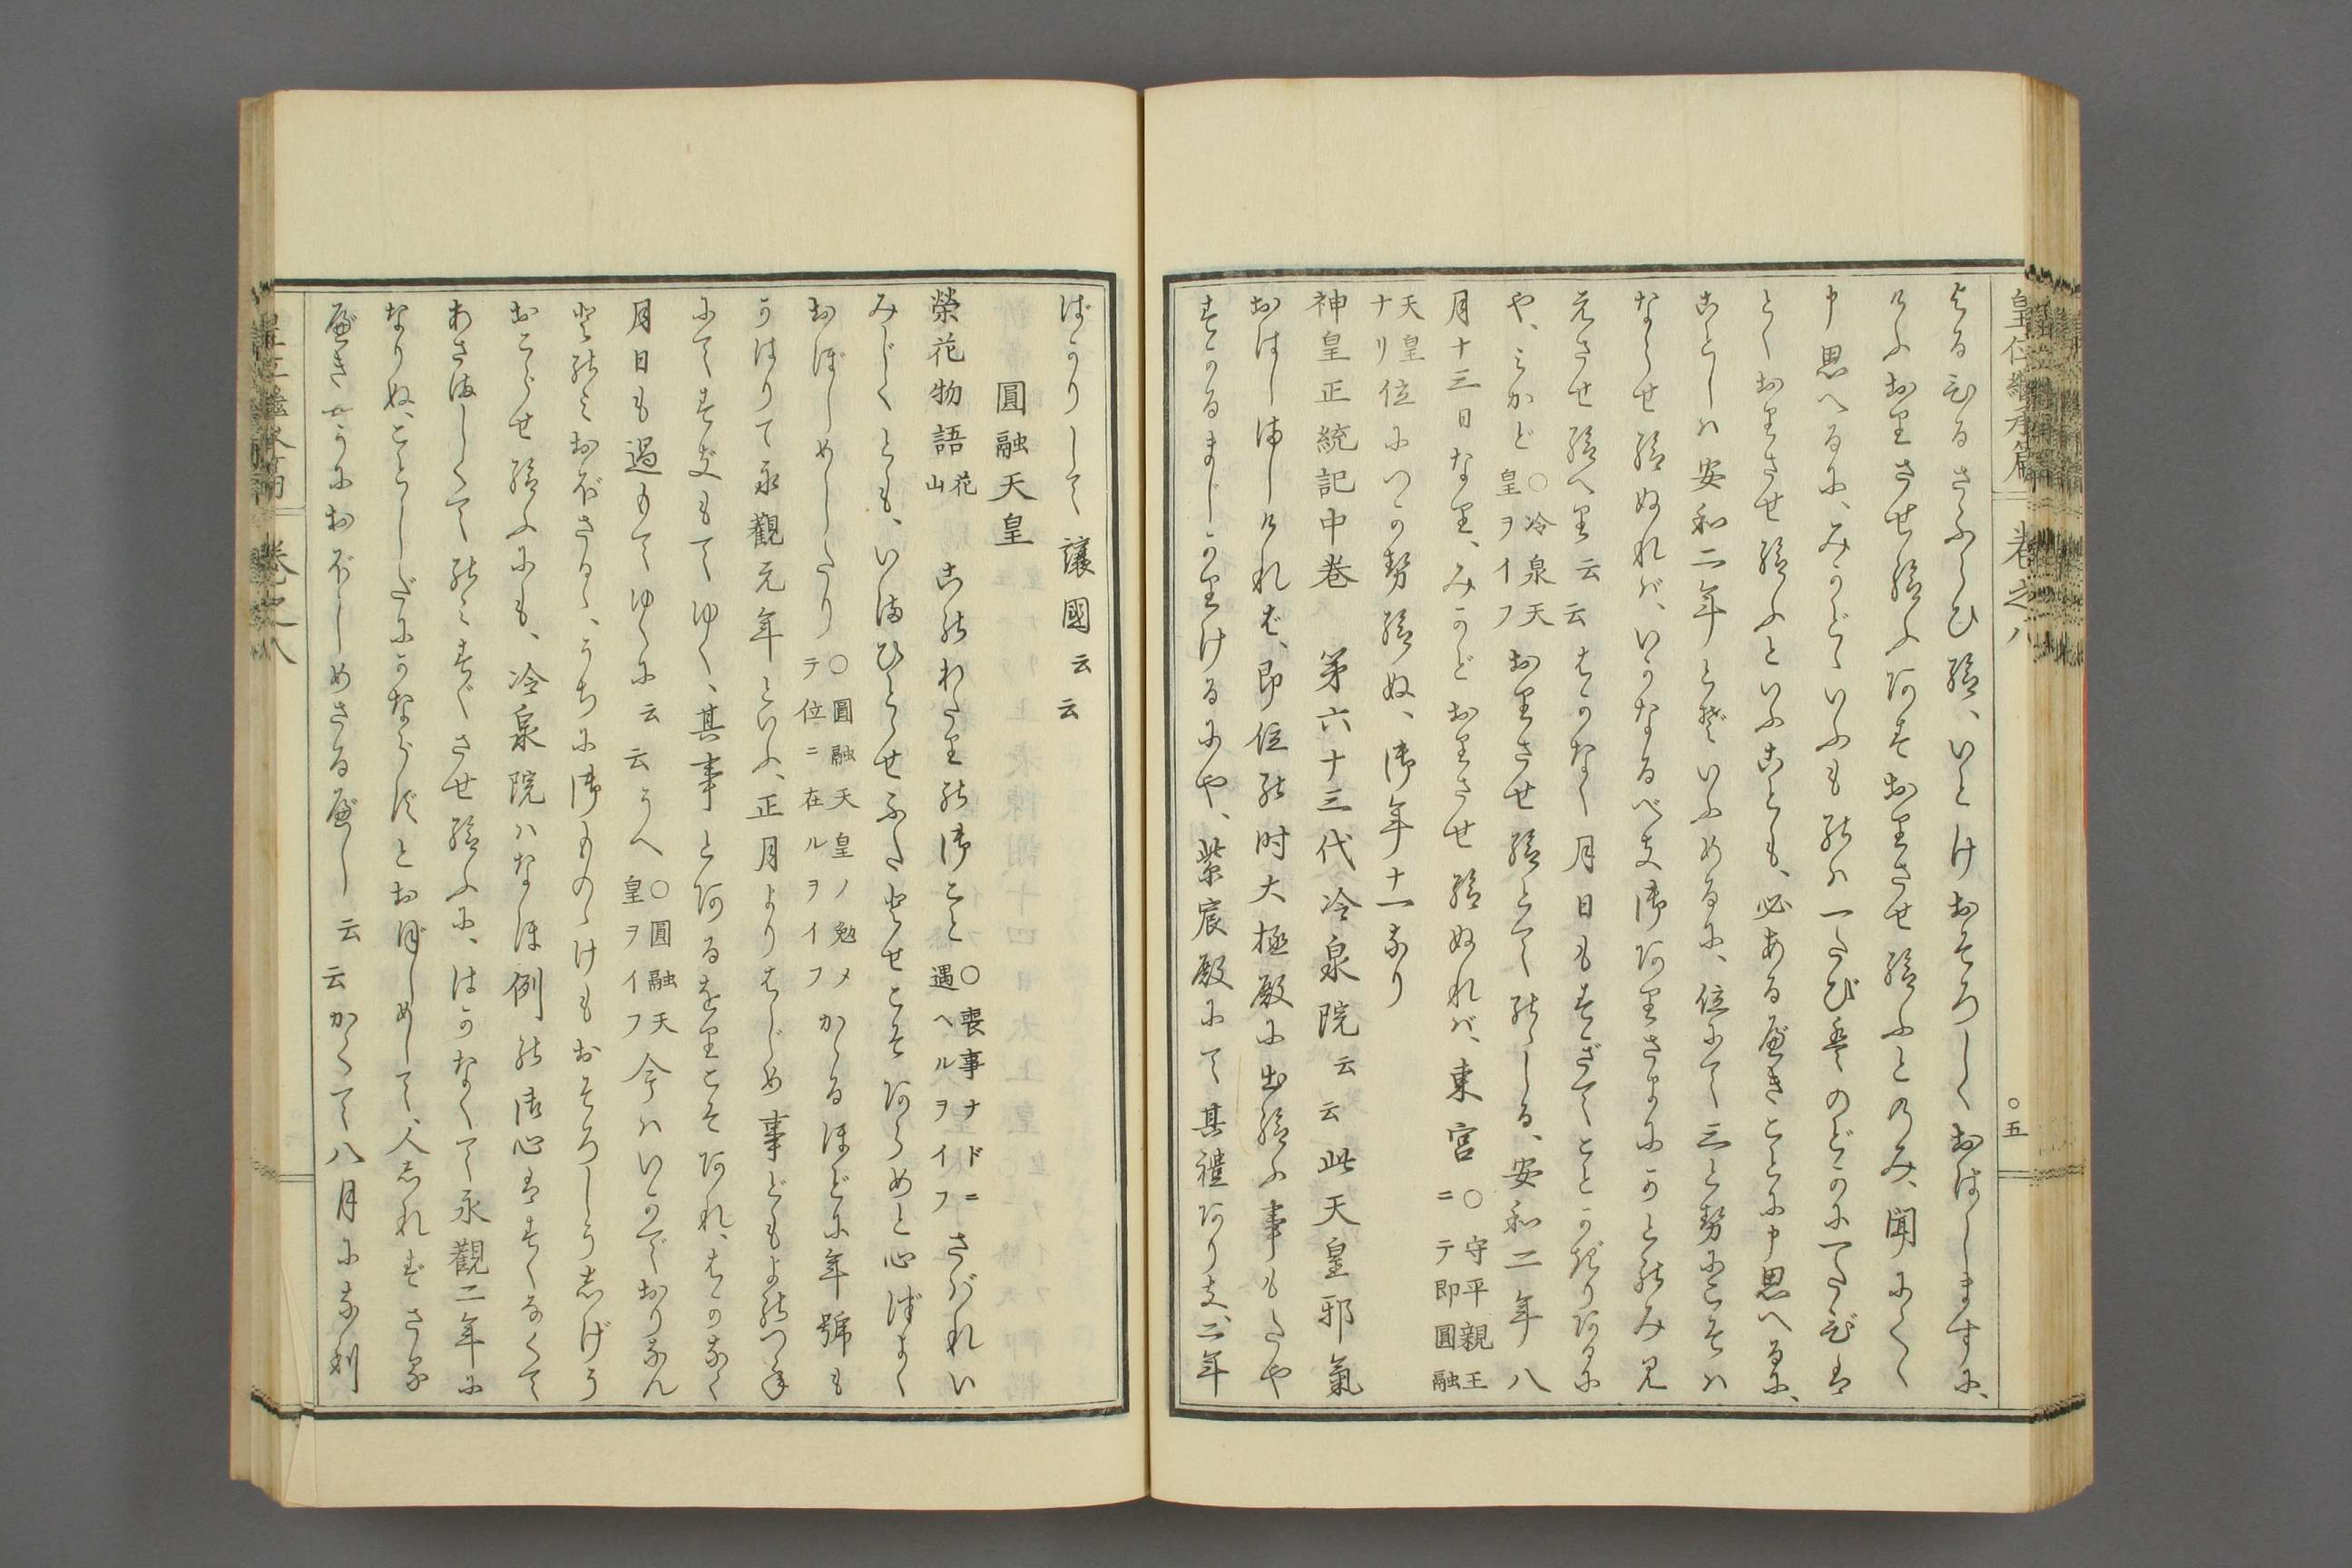 皇位繼承篇 卷之八 ○五
はるむるさふらひ給、いとけおそろしくおはしますに、
けふおりさせ給ふあすおりさせ給ふとのみ、聞にくく
申思へるに、みかどゝいふものハ一たび者のどかに一たび者
とくおりさせ給ふといふことも、必あるべきことに申思へるに、
ことしハ安和二年とぞいふめるに、位にて三とせにこそハ
ならせ給ぬれバ、いかなるべき御ありさまにかとのみ見
えさせ給へり云云はかなく月日もすぎてことかぎりあるに
や、みかど○冷泉天皇ヲイフおりさせ給とてのゝしる、安和二年八
月十三日なり、みかどおりさせ給ぬれバ、東宮○守平親王ニテ即圓融
天皇ナリ位につかせ給ぬ、御年十一なり
神皇正統記中卷 第六十三代冷泉院云云此天皇邪氣
おはしましければ、即位の時大極殿に出給ふ事もたや
すかるまじかりけるにや、紫宸殿にて其禮ありき、二年
ばかりして讓國云云
圓融天皇
榮花物語花山 このわたりの御こと○喪事ナドニ遇ヘルヲイフさばれい
みじくとも、いまひとゝせふたとせこそあらめと心づよく
おぼしめしたり○圓融天皇ノ勉メテ位ニ在ルヲイフかゝるほどに年號も
かはりて永觀元年といふ、正月よりはじめ事どもよのつね
にてすぎもてゆく、其事とあるをりこそあれ、はかなく
月日も過もてゆくに云云うへ○圓融天皇ヲイフ今ハいかでおりなん
とのみおぼさるゝ、うちに御ものゝけもおそろしうしげう
おこらせ給ふにも、冷泉院ハなほ例の御心はすくなくて
あさましくてのみすぐさせ給ふに、はかなくて永觀二年に
なりぬ、ことしだにかならずとおぼしめして、人しれずさる
べきやうにおぼしめさるべし云云かくて八月になり
皇位繼承篇 卷之八